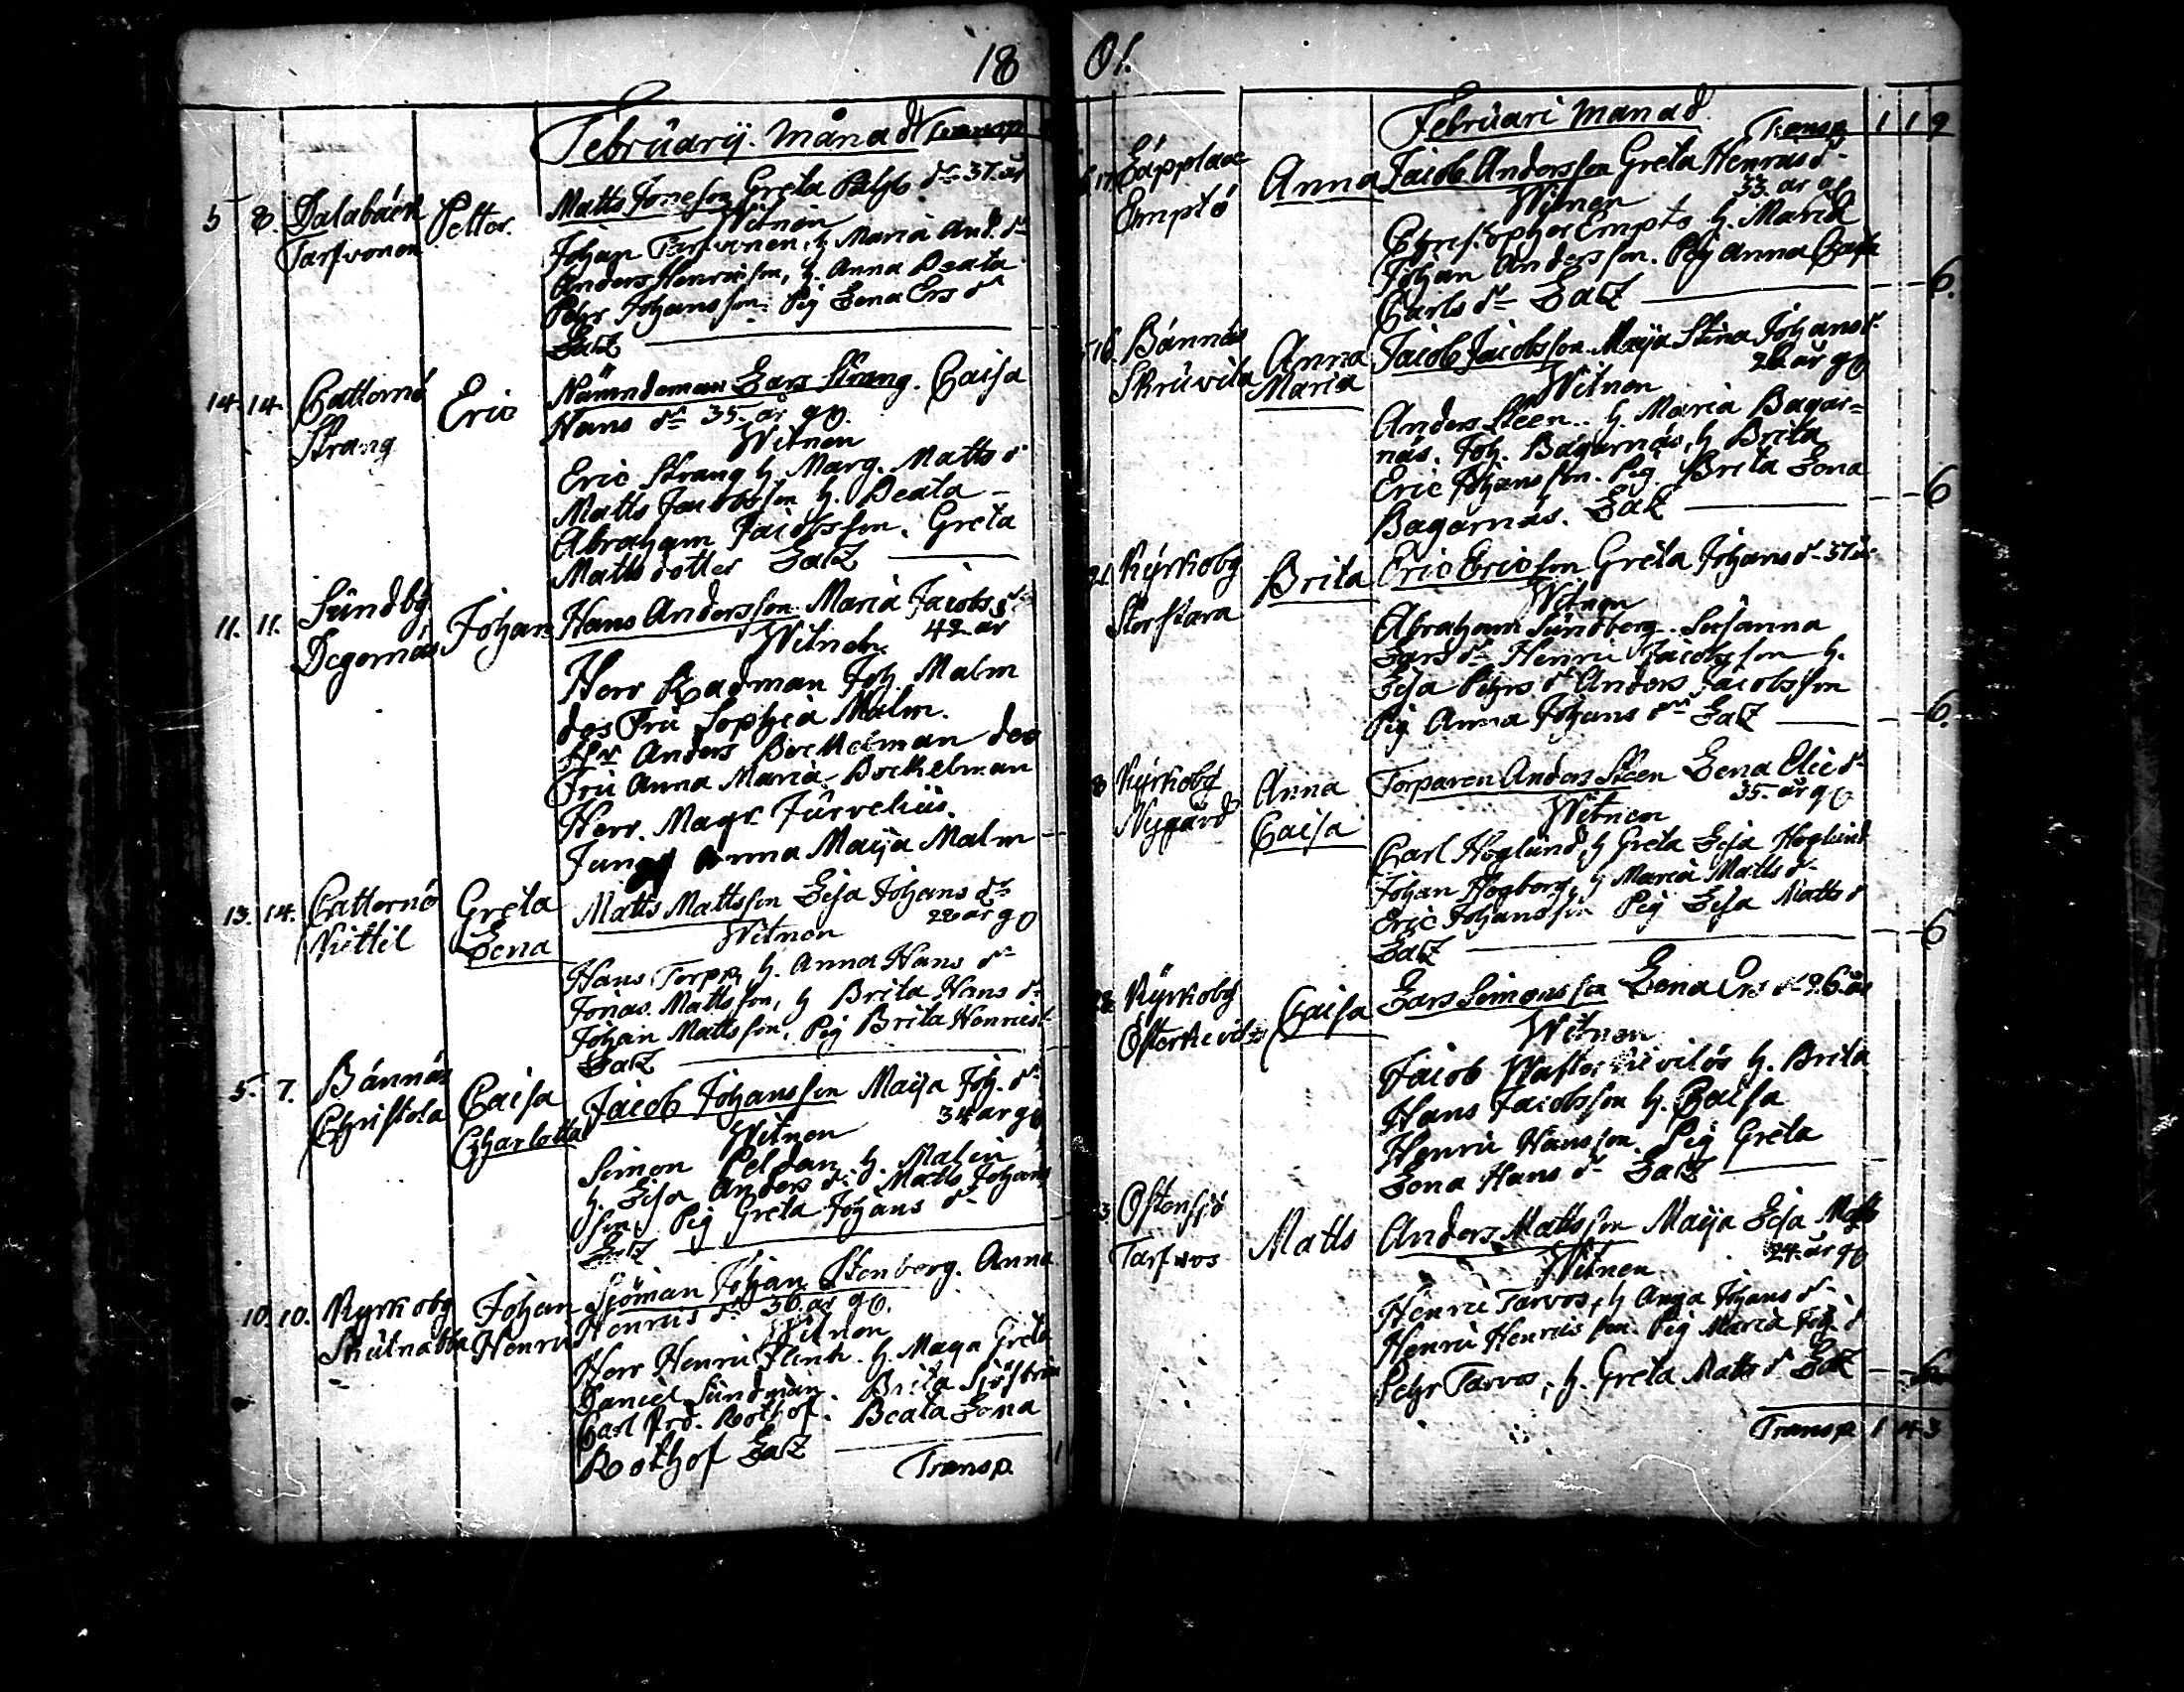 18
Februarij Månad Transp
5 8. Dalabäck Petter. Matts Joneson Greta Pehrs dr 37. år
Tarfvonen Witnen
Johan Tarfvonen, h Maria And. dr
Anders Henricsson, h. Anna Beata
Pehr Johansson. Pig Lena Ers dr
Latz
14. 14. Catternö Eric Nämndeman Lars Strang. Caisa
Strang Hans dr 35. år gl.
Witnen
Eric Strang h. Marg. Matts d
Matts Jacobsson h. Beata
Abraham Jacobsson. Greta
Mattsdotter Latz
11. 11. Sundby Johan Hans Andersson Maria Jacobs dr
Degernäs 42 år
Witnen
Herr Radman Joh. Malm
des Fru Sophia Malm.
Hr Anders Bockelman des
Fru Anna Maria Bockelman
Herr. Magr Jurvelius.
Jungf Anna Maija Malm
13. 14. Catternö Greta Matts Mattsson Lisa Johans dr
Niettil Lena 22 år gl
Witnen
Hans Torpp, h. Anna Hans dr
Jonas Mattsson, h Brita Hans dr
Johan Mattsson, Pig Brita Henricsd
Latz
5. 7. Bännäs Caisa Jacob Johansson Maija Joh. dr
Christola Charlotta 34 år gl
Witnen
Simon Peldan h. Malin
h. Lisa Anders dr Matts Johans
son, Pig Greta Johans dr
Latz
10. 10. Kyrkoby Johan Sjöman Johan Stenberg. Anna
Skutnabba Henric Henrics dr 36. år gl.
Witnen
Herr Henric Flink. h. Maya Greta
Daniel Sundman. Brita Sjöström
Carl Frd. Rothof. Beata Lena
Rothof Latz
Transp. 1
01.
Februari Månad. Transp 1 1 9
17. Lappdax Anna Jacob Andersson Greta Henricsdr
Emptö 33. år gl
Witnen
Christopher Empto h. Maria
Johan Andersson. Pig Anna Caisa
Carls dr Latz 6.
Bännäs Anna Jacob Jacobsson Maija Stina Johansd.
Skruvila Maria 28 år gl
Witnen
Anders Steen. h. Maria Bagar=
näs. Joh. Bagarnäs, h Brita
Eric Johansson. Pig. Brita Lena
Bagarnäs. Latz 6
Kyrkoby Brita Eric Ericsson Greta Johans d 37 år
Storstara Witnen
Abraham Sundberg. Susanna
Lars dr Henric Jacobsson h.
Lisa Pehrs d Anders Jacobsson
Pig Anna Johans dr Latz 6.
8 Kyrkoby Anna Torparen Anders Steen Lena Elic dr
Nygård Caisa 35. år gl
Witnen
Carl Höglund, h Greta Lisa Höglund
Johan Högberg, h Maria Matts dr
Eric Johansson Pig Lisa Matts d
Latz 6
Kyrkoby Caisa Lars Simonsson Lena Ers dr 26. år
Österkevilös Witnen
Jacob Wäster kievilös h. Brita
Hans Jacobsson h. Caisa
Henric Hansson. Pig Greta
Lena Hans dr Latz
Östensjö Matts Anders Mattsson Maija Lisa Matts
Tarfvos 24. år gl
Witnen
Henric Tarvos, h Anna Johans dr
Henric Henricsson. Pig Maria Joh. d
Pehr Tarvos, h. Greta Matts d Latz 6
Transp 1 4 3